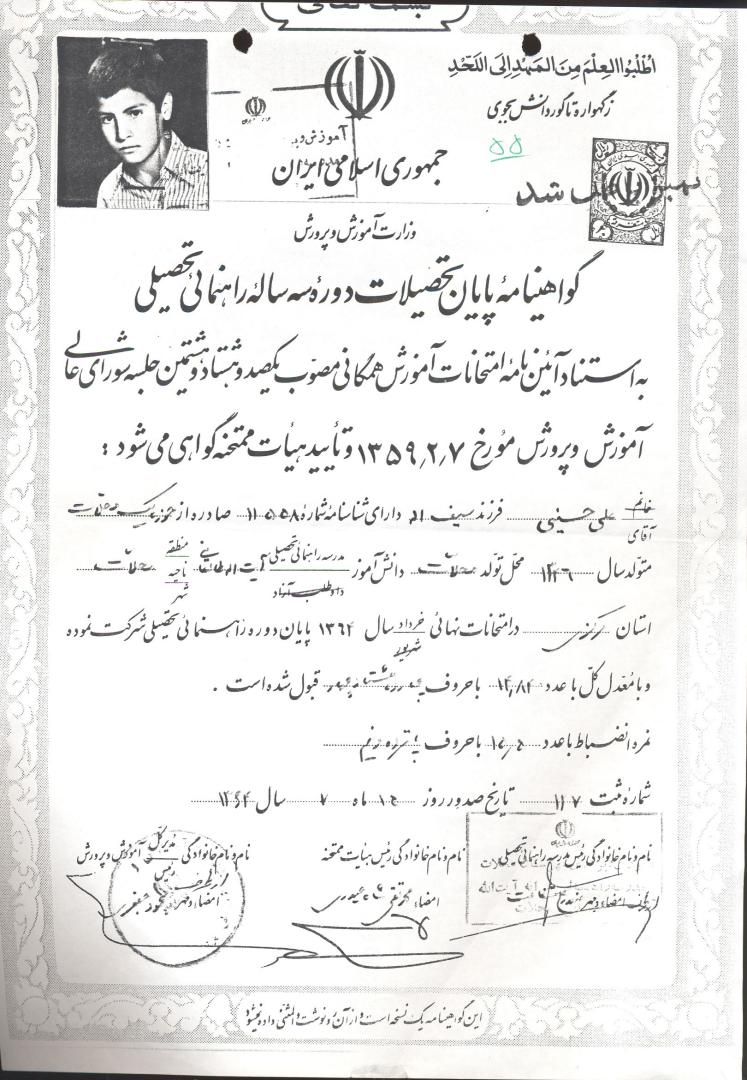 بسمه تعالی
اُطْلُبُوا العِلْمَ مِنَ المَهْدِ اِلَی اللَحَدِ
زگهواره تا گور دانش بجوی
۵۵
جمهوری اسلامی ایران
شد
وزارت آموزش و پرورش
گواهینامهٔ پایان تحصیلات دورهٔ سه سالهٔ راهنمائی تحصیلی
به استناد آئین نامهٔ امتحانات آموزش همگانی مصوّب یکصد و هشتاد و هشتمین جلسه شورای عالی
آموزش و پرورش مورخ ۱۳۵۹٫۲٫۷ و تأیید هیأت ممتحنه گواهی می شود :
خانم آقای علی حسینی فرزند سیف اله دارای شناسنامه شماره ۱۱۵۵۸ صادره از حوزه یک محلات
متولد سال محل تولد محلات دانش آموز مدرسه راهنمائی تحصیلی داوطلب آزاد منطقه ناحیه شهر محلات
استان مرکزی در امتحانات نهائی خرداد شهریور سال ۱۳۶۴ پایان دوره راهنمائی تحصیلی شرکت نموده
و با معدّل کلّ با عدد ۱۴٫۸۴ با حروف قبول شده است .
نمره انضباط با عدد با حروف
شمارهٔ ثبت ۱۱۷ تاریخ صدور روز ماه ۷ سال ۱۳۶۴
نام و نام خانوادگی رئیس مدرسه راهنمائی تحصیلی نام و نام خانوادگی رئیس هیأت ممتحنه نام و نام خانوادگی مدیر کل رئیس آموزش و پرورش
امضاء و مهر امضاء محمد تقی امضاء و مهر محمود جعفری
این گواهینامه یک نسخه است و از آن رونوشت و المثنی داده نمیشود